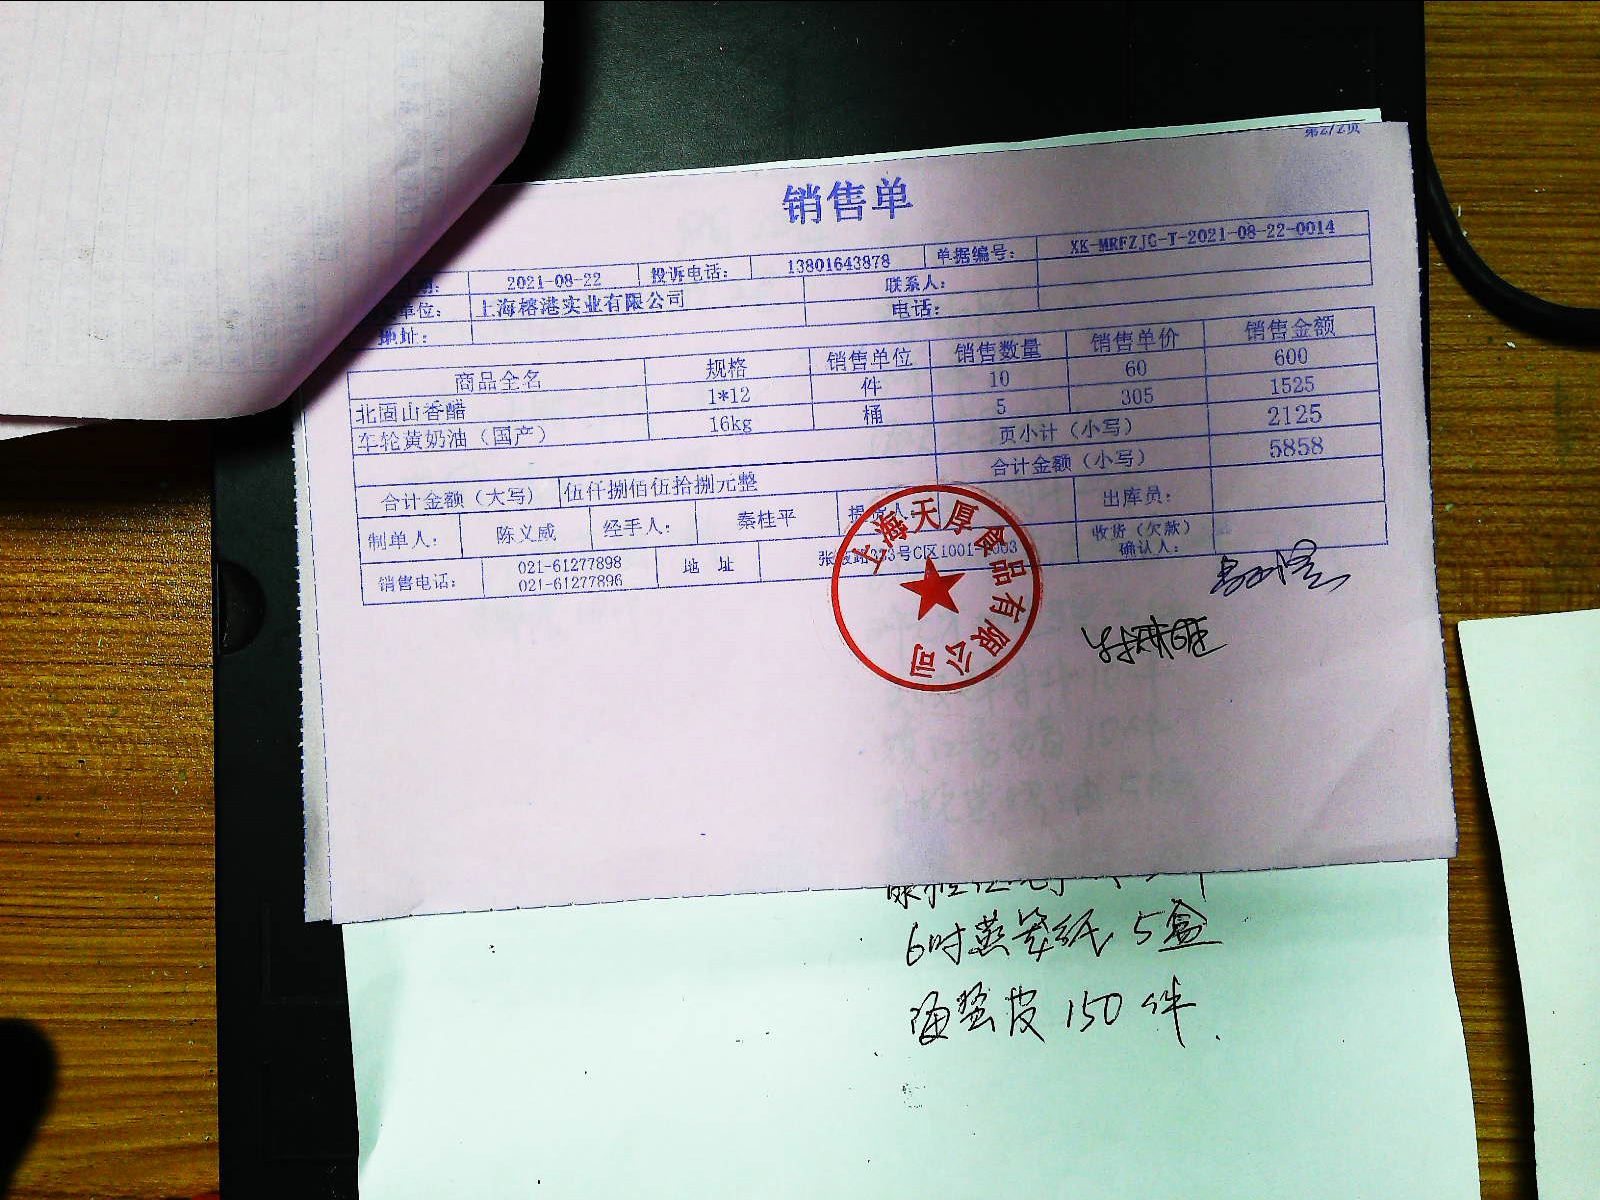 第2/2页
销售单
期： 2021-08-22 投诉电话： 13801643878 单据编号： XK-MRFZJG-T-2021-08-22-0014
单位： 上海榕港实业有限公司 联系人：
地址： 电话：
商品全名 规格 销售单位 销售数量 销售单价 销售金额
北固山香醋 1*12 件 10 60 600
车轮黄奶油（国产） 16kg 桶 5 305 1525
页小计（小写） 2125
合计金额（大写） 伍仟捌佰伍拾捌元整 合计金额（小写） 5858
制单人： 陈义威 经手人： 秦桂平 提货人： 出库员：
销售电话： 021-61277898 地 址 收货（欠款）
021-61277896 确认人：
上海天厚食品有限公司
6吋蒸笼纸 5盒
海蜇皮 150件